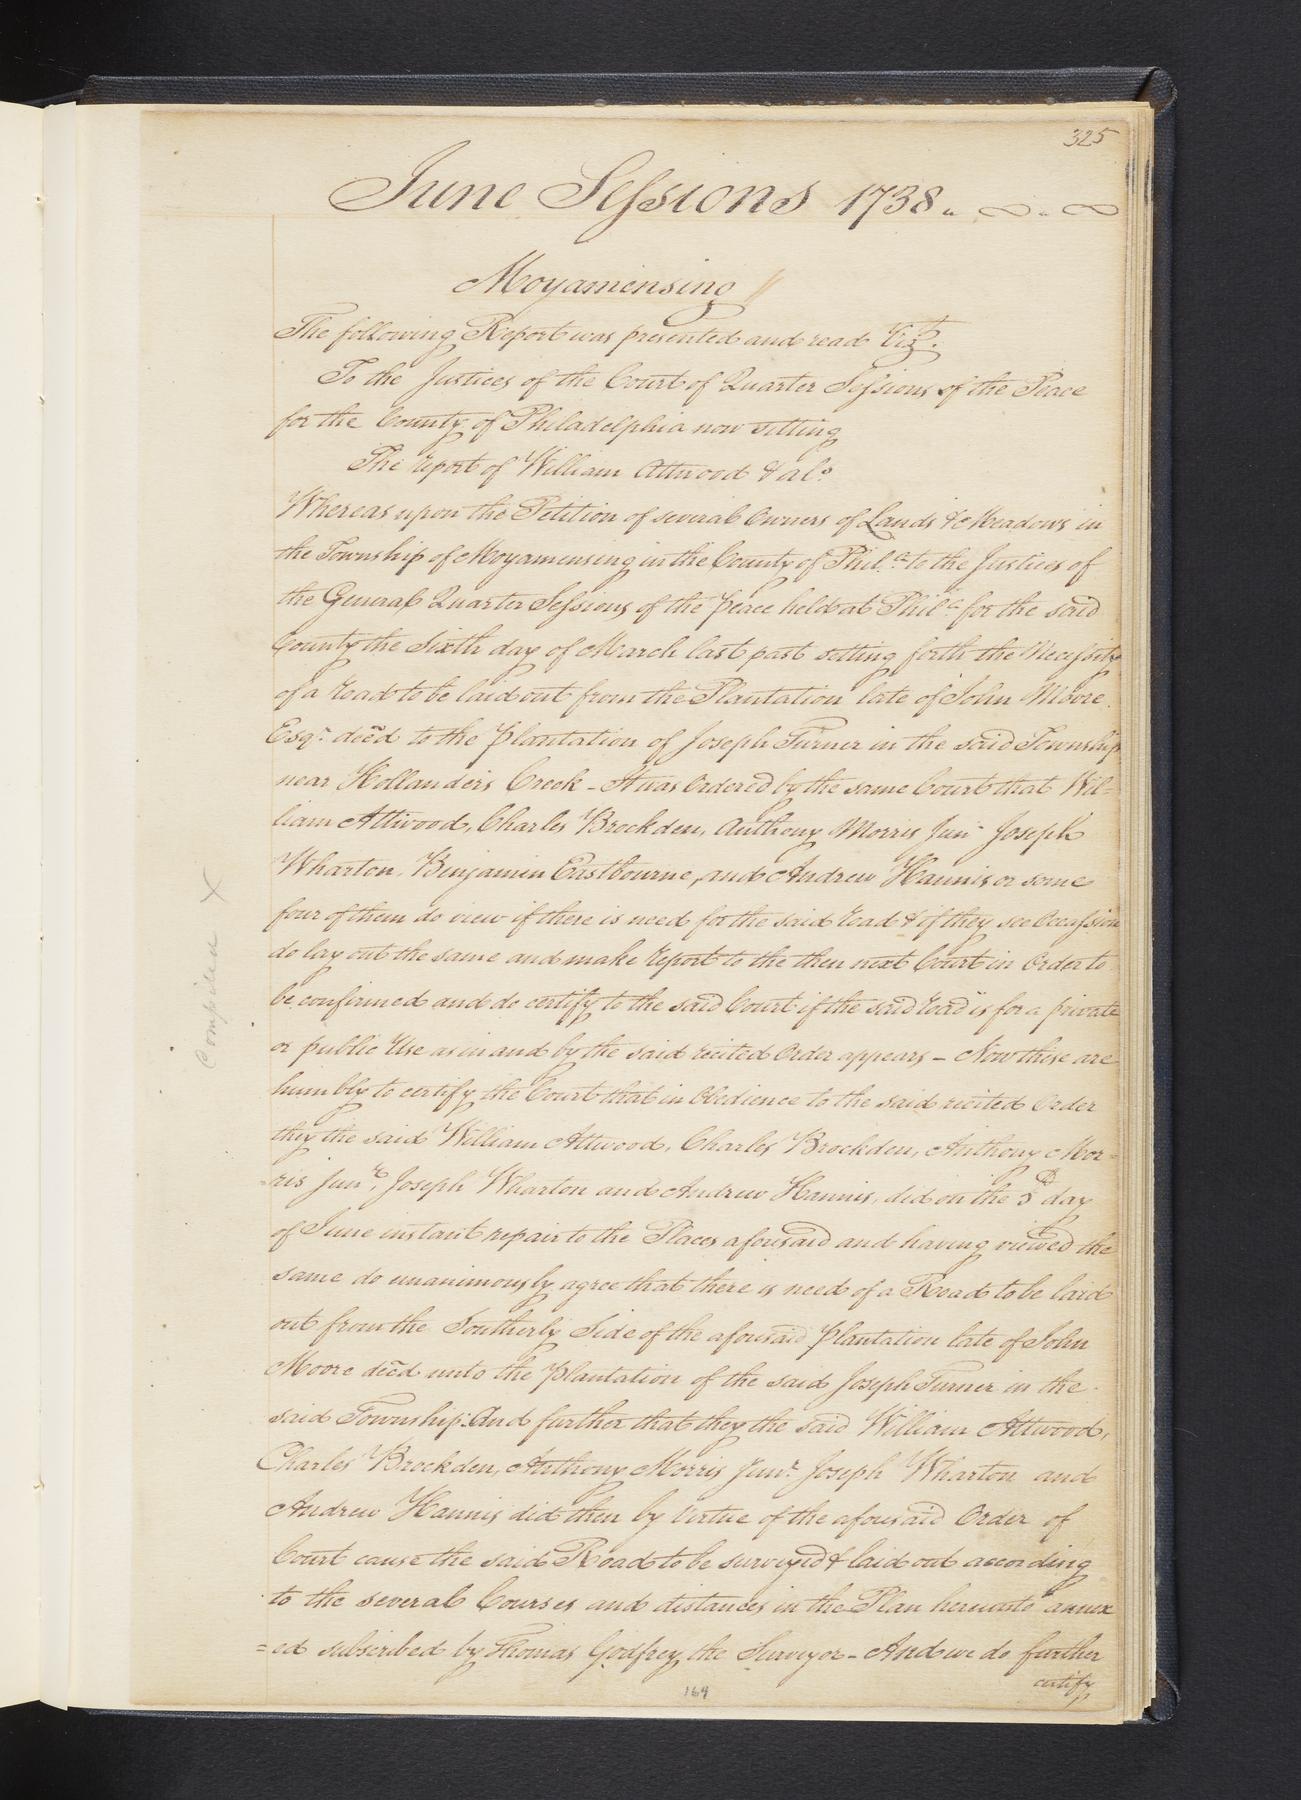 325
June Sessions 1738
Moyamensing //
The following Report was presented and read Vizt.
To the Justices of the Court of Quarter Sessions of the Peace
for the County of Philadelphia now sitting
The report of William Attwood & als
Whereas upon the Petition of several Owners of Lands & Meadows in
the Township of Moyamensing in the County of Phil.a to the Justices of
the General Quarter Sessions of the peace held at Phil.a for the said
County the Sixth day of March last past setting forth the Necessity
of a road to be laid out from the Plantation late of John Moore
Esqr. decd. to the plantation of Joseph Turner in the said Township
near Hollanders Creek - It was Ordered by the same Court that Wil=
liam Attwood, Charles Brockden, Anthony Morris Junr Joseph
Wharton, Benjamin Eastbourne, and Andrew Hannis or some
four of them do view if there is need for the said road & if they see Occassion
do lay out the same and make report to the then next Court in Order to
be confirmed and do certify to the said Court if the said road is for a private
or public Use as in and by the said recited Order appears - Now these are
humbly to certify the Court that in Obedience to the said recited Order
they the said William Attwood, Charles Brockden, Anthony Mor=
=ris Junr, Joseph Wharton and Andrew Hannis, did on the 3d day
of June instant repair to the Places aforesaid and having viewed the
same do unanimously agree that there is need of a Road to be laid
out from the Southerly Side of the aforesaid plantation late of John
Moore decd unto the plantation of the said Joseph Turner in the
said Township. And further that they the said William Attwood,
Charles Brockden, Anthony Morris Junr. Joseph Wharton and
Andrew Hannis did then by Virtue of the aforesaid Order of
Court cause the said Road to be surveyed & laid out according
to the several Courses and distances in the Plan hereunto annex
=ed subscribed by Thomas Godfrey the Surveyor - And we do further
certify
164
Compiled X